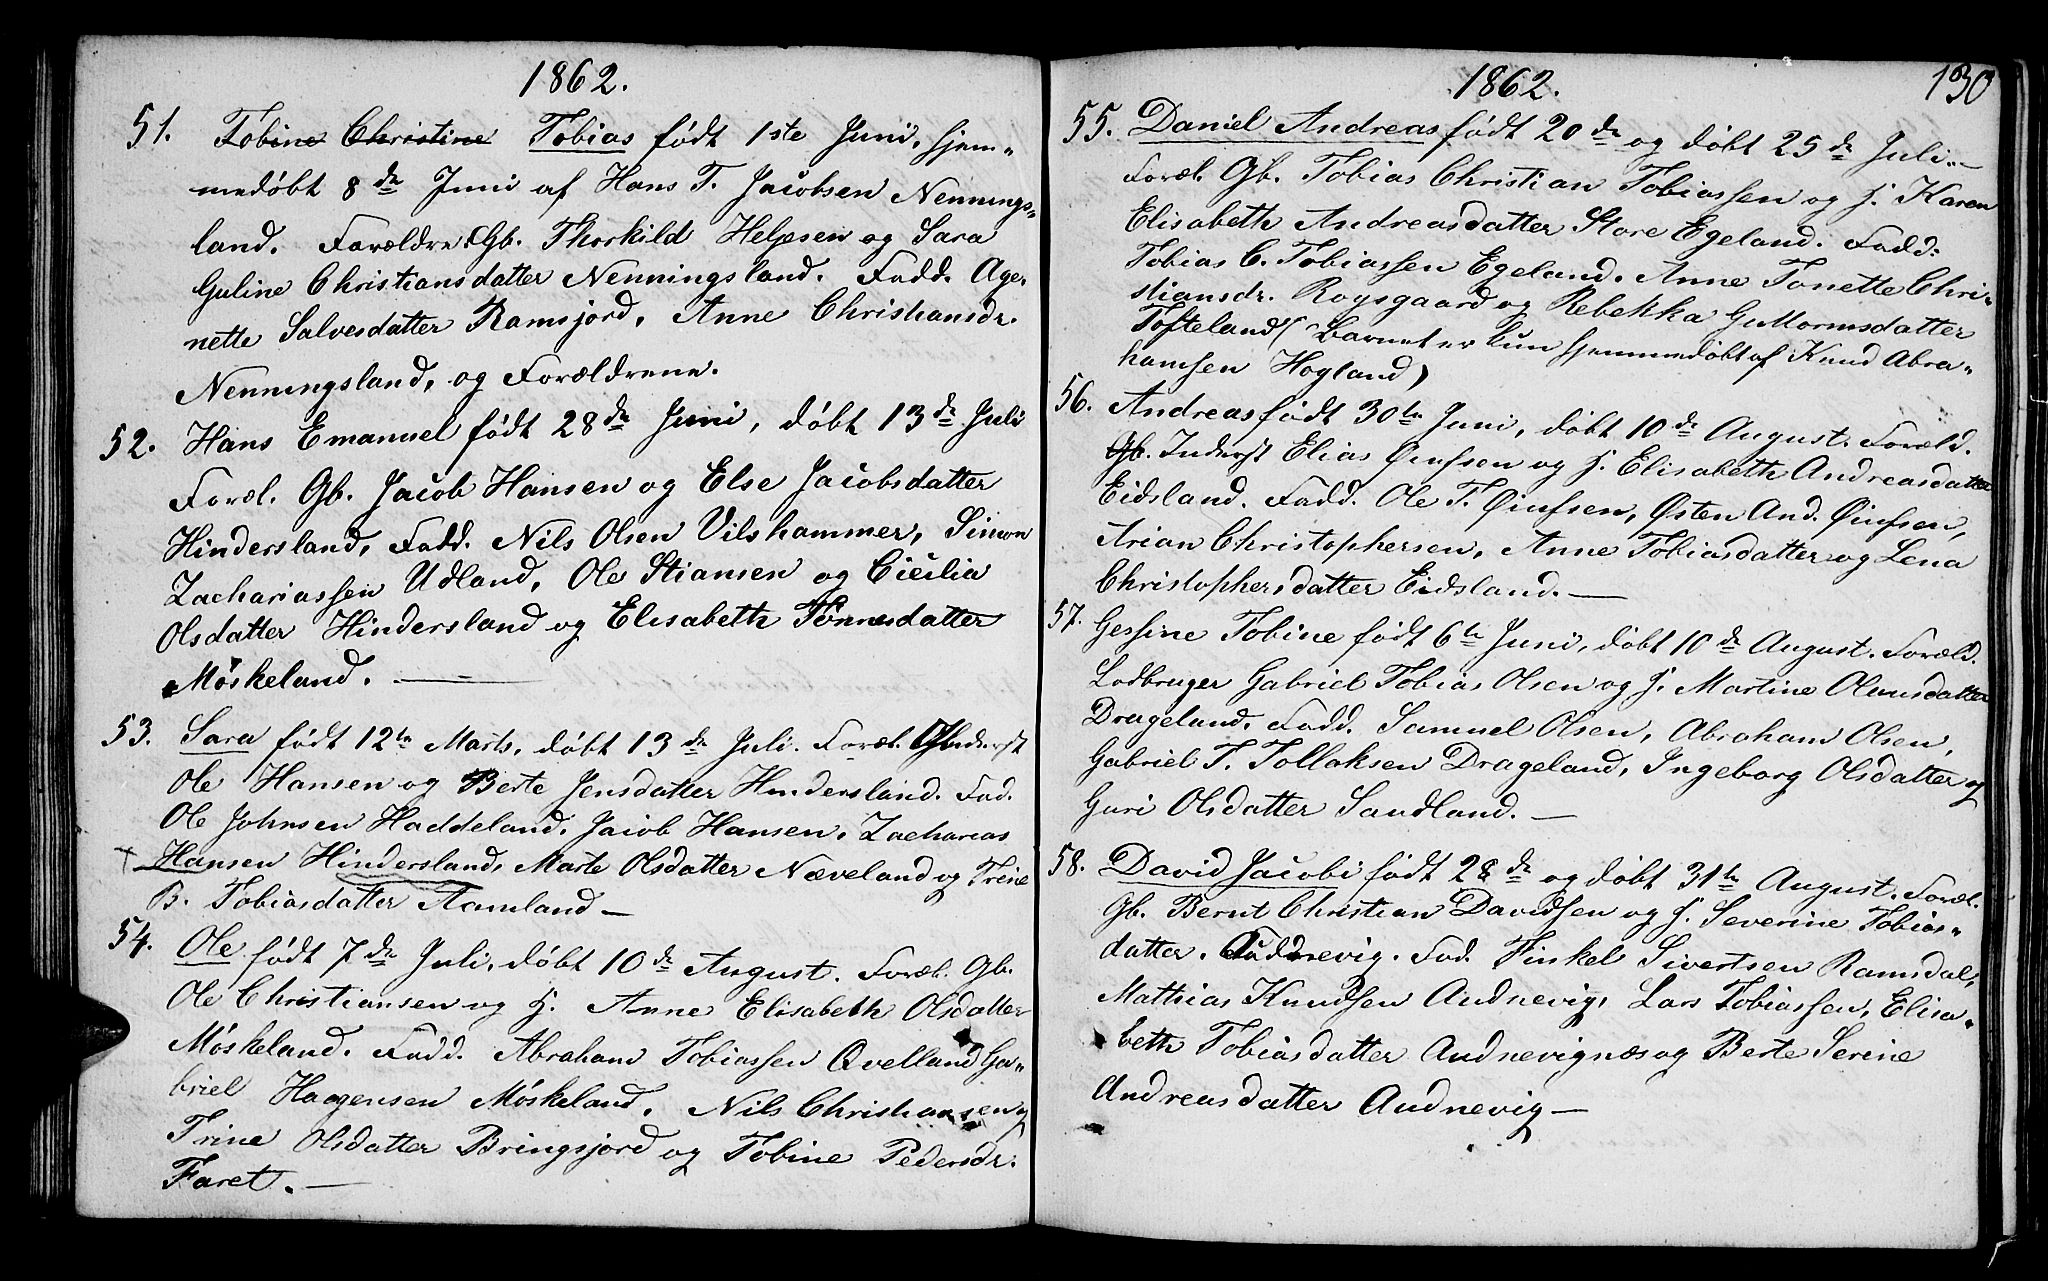 1862.
51. Tobine Christine Tobias født 1ste Juni, hjem-
medøbt 8de Juni af Hans T. Jacobsen Nennings-
land. Forældre Gb. Thorkild Heljesen og Sara
Guline Christiansdatter Nenningsland. Fadd. Age-
nette Salvesdatter Ramsfjord, Anne Christiansdr.
Nenningsland, og Forældrene.
52. Hans Emanuel født 28de Juni, døbt 13de Juli
Foræl. Gb. Jacob Hansen og Else Jacobsdatter
Hindersland, Fadd. Nils Olsen Vilshammer, Simon
Zachariassen Udland, Ole Stiansen og Cicilia
Olsdatter Hindersland og Elisabeth Tønnesdatter
Møskeland. —
53. Sara født 12te Marts, døbt 13de Juli. Foræl. Inderst
Ole Hansen og Berte Jensdatter Hindersland. Fad.
Ole Johnsen Haddeland, Jacob Hansen, Zacharias
Hansen Hindersland, Marte Olsdatter Næveland og Trine
B. Tobiasdatter Aamland —
54. Ole født 7de Juli, døbt 10de August. Foræl. Gb.
Ole Christiansen og H. Anne Elisabeth Olsdatter
Møskeland. Fadd. Abraham Tobiassen Qvelland, Ga-
briel Haagensen Møskeland, Nils Christiansen og
Trine Olsdatter Bringsjord og Tobine Pedersdr.
Faret. —
1862.
130
55. Daniel Andreas født 20de og døbt 25de Juli —
Foræl. Gb. Tobias Christian Tobiassen og H. Karen
Elisabeth Andreasdatter Store Egeland. Fadd:
Tobias C. Tobiassen Egeland, Anne Tonette Chri-
stiansdr. Rogsgaard og Rebekka Guttormsdatter
Tofteland (Barnet er kun hjemmedøbt af Knud Abra-
hamsen Hogland)
56. Andreas født 30te Juni, døbt 10de August. Foræld.
Gb. Inderst Elias Øiufsen og H. Elisabeth Andreasdatter
Eidsland. Fadd. Ole T. Øiufsen, Østen And. Øiufsen,
Arian Christophersen, Anne Tobiasdatter og Lena
Christophersdatter Eidsland. —
57. Gessine Tobine født 6te Juni, døbt 10de August. Foræld.
Lodbruger Gabriel Tobias Olsen og H. Martine Olausdatter
Drageland. Fadd. Samuel Olsen, Abraham Olsen,
Gabriel T. Tollaksen Drageland, Ingeborg Olsdatter og
Guri Olsdatter Sandland. —
58. David Jacobi født 28de og døbt 31te August. Foræl.
Gb. Bernt Christian Davidsen og H. Severine Tobias-
datter. Audnevig. Fad. Finkel Sivertsen Ramsdal,
Mathias Knudsen Audnevig, Lars Tobiassen, Elisa-
beth Tobiasdatter Audnevignæs og Berte Serine
Andreasdatter Audnevig —